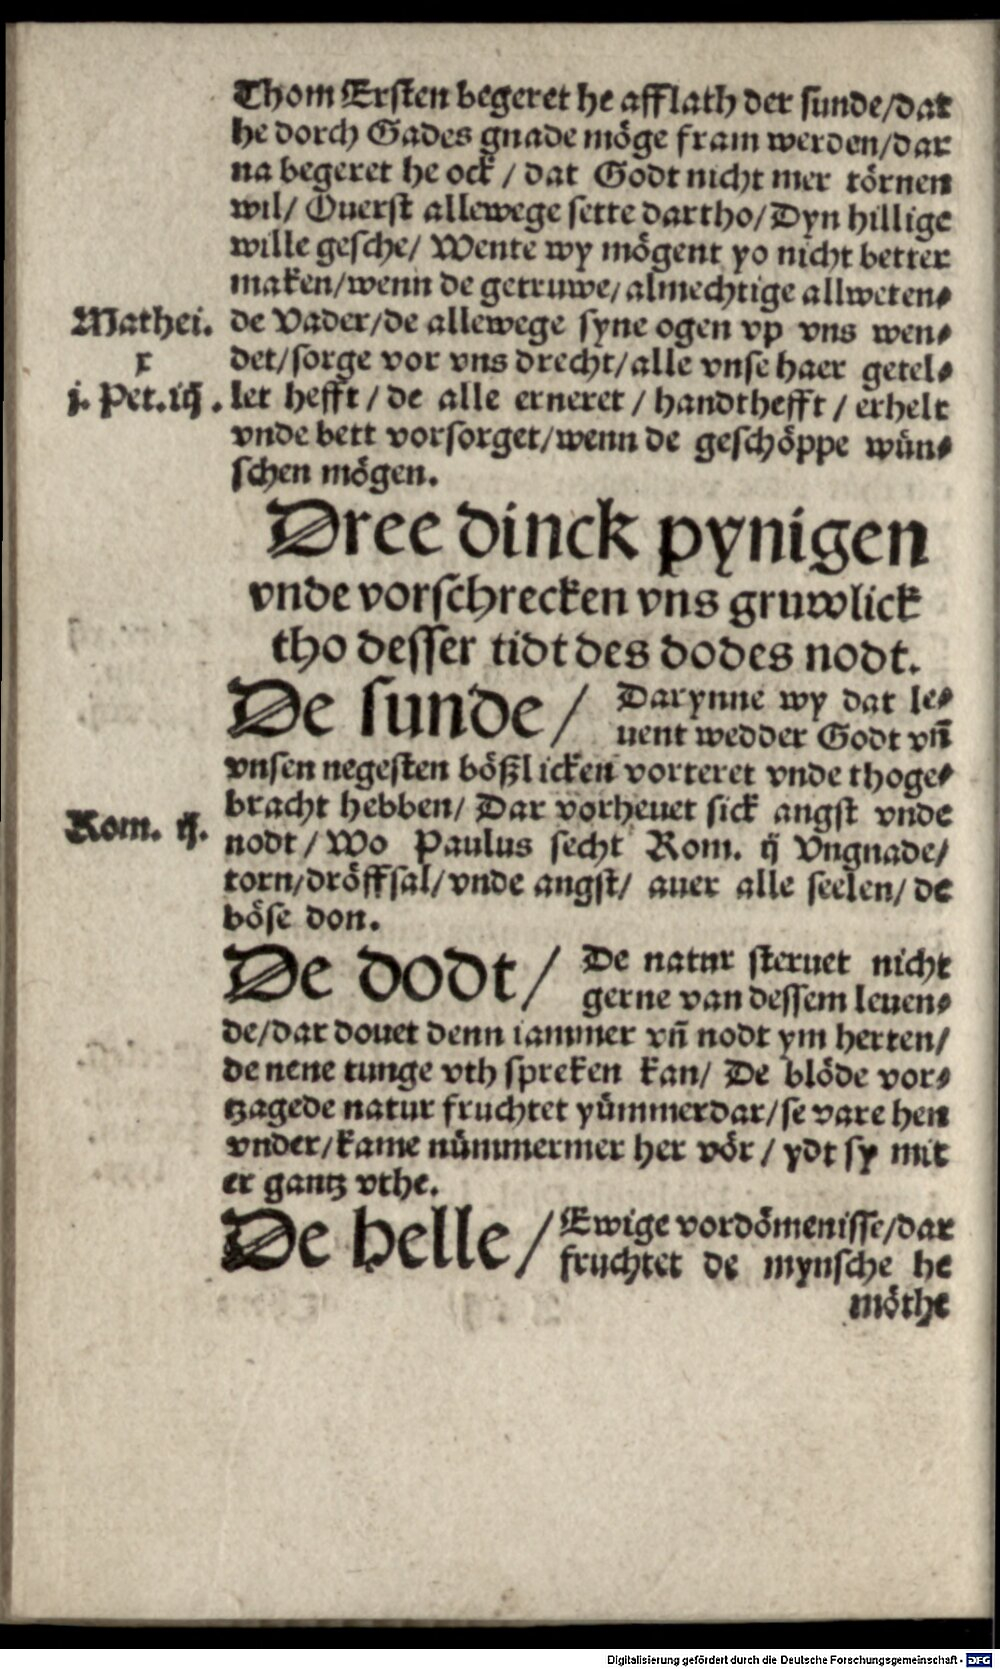 Thom Ersten begeret he afflath der sunde/dat
he dorch Gades gnade möge fram werden/dar
na begeret he ock / dat Godt nicht mer törnen
wil/ Ouerst allewege sette dartho/Dyn hillige
wille gesche/ Wente wy mögent yo nicht better
maken/wenn de getruwe/almechtige allweten⸗
Mathei. x
de Vader/de allewege syne ogen vp vns wen⸗
det/sorge vor vns drecht/alle vnse haer getel⸗
j. Pet. iij.
let hefft / de alle erneret / handthefft / erhelt
vnde bett vorsorget/wenn de geschöppe wün⸗
schen mögen.
Dree dinck pynigen
vnde vorschrecken vns gruwlick
tho desser tidt des dodes nodt.
De sunde / Darynne wy dat le⸗
uent wedder Godt vñ
vnsen negesten bößlicken vorteret vnde thoge⸗
bracht hebben/ Dar vorheuet sick angst vnde
Rom. ij.
nodt / Wo Paulus secht Rom. ij Vngnade/
torn/dröffsal/vnde angst/ auer alle seelen/ de
böse don.
De dodt / De natur steruet nicht
gerne van dessem leuen⸗
de/dar douet denn iammer vñ nodt ym herten/
de nene tunge vth spreken kan/ De blöde vor⸗
tzagede natur fruchtet yümmerdar/se vare hen
vnder/kame nümmermer her vör / ydt sy mit
er gantz vthe.
De helle / Ewige vordömenisse/dar
fruchtet de mynsche he
möthe
Digitalisierung gefördert durch die Deutsche Forschungsgemeinschaft - DFG